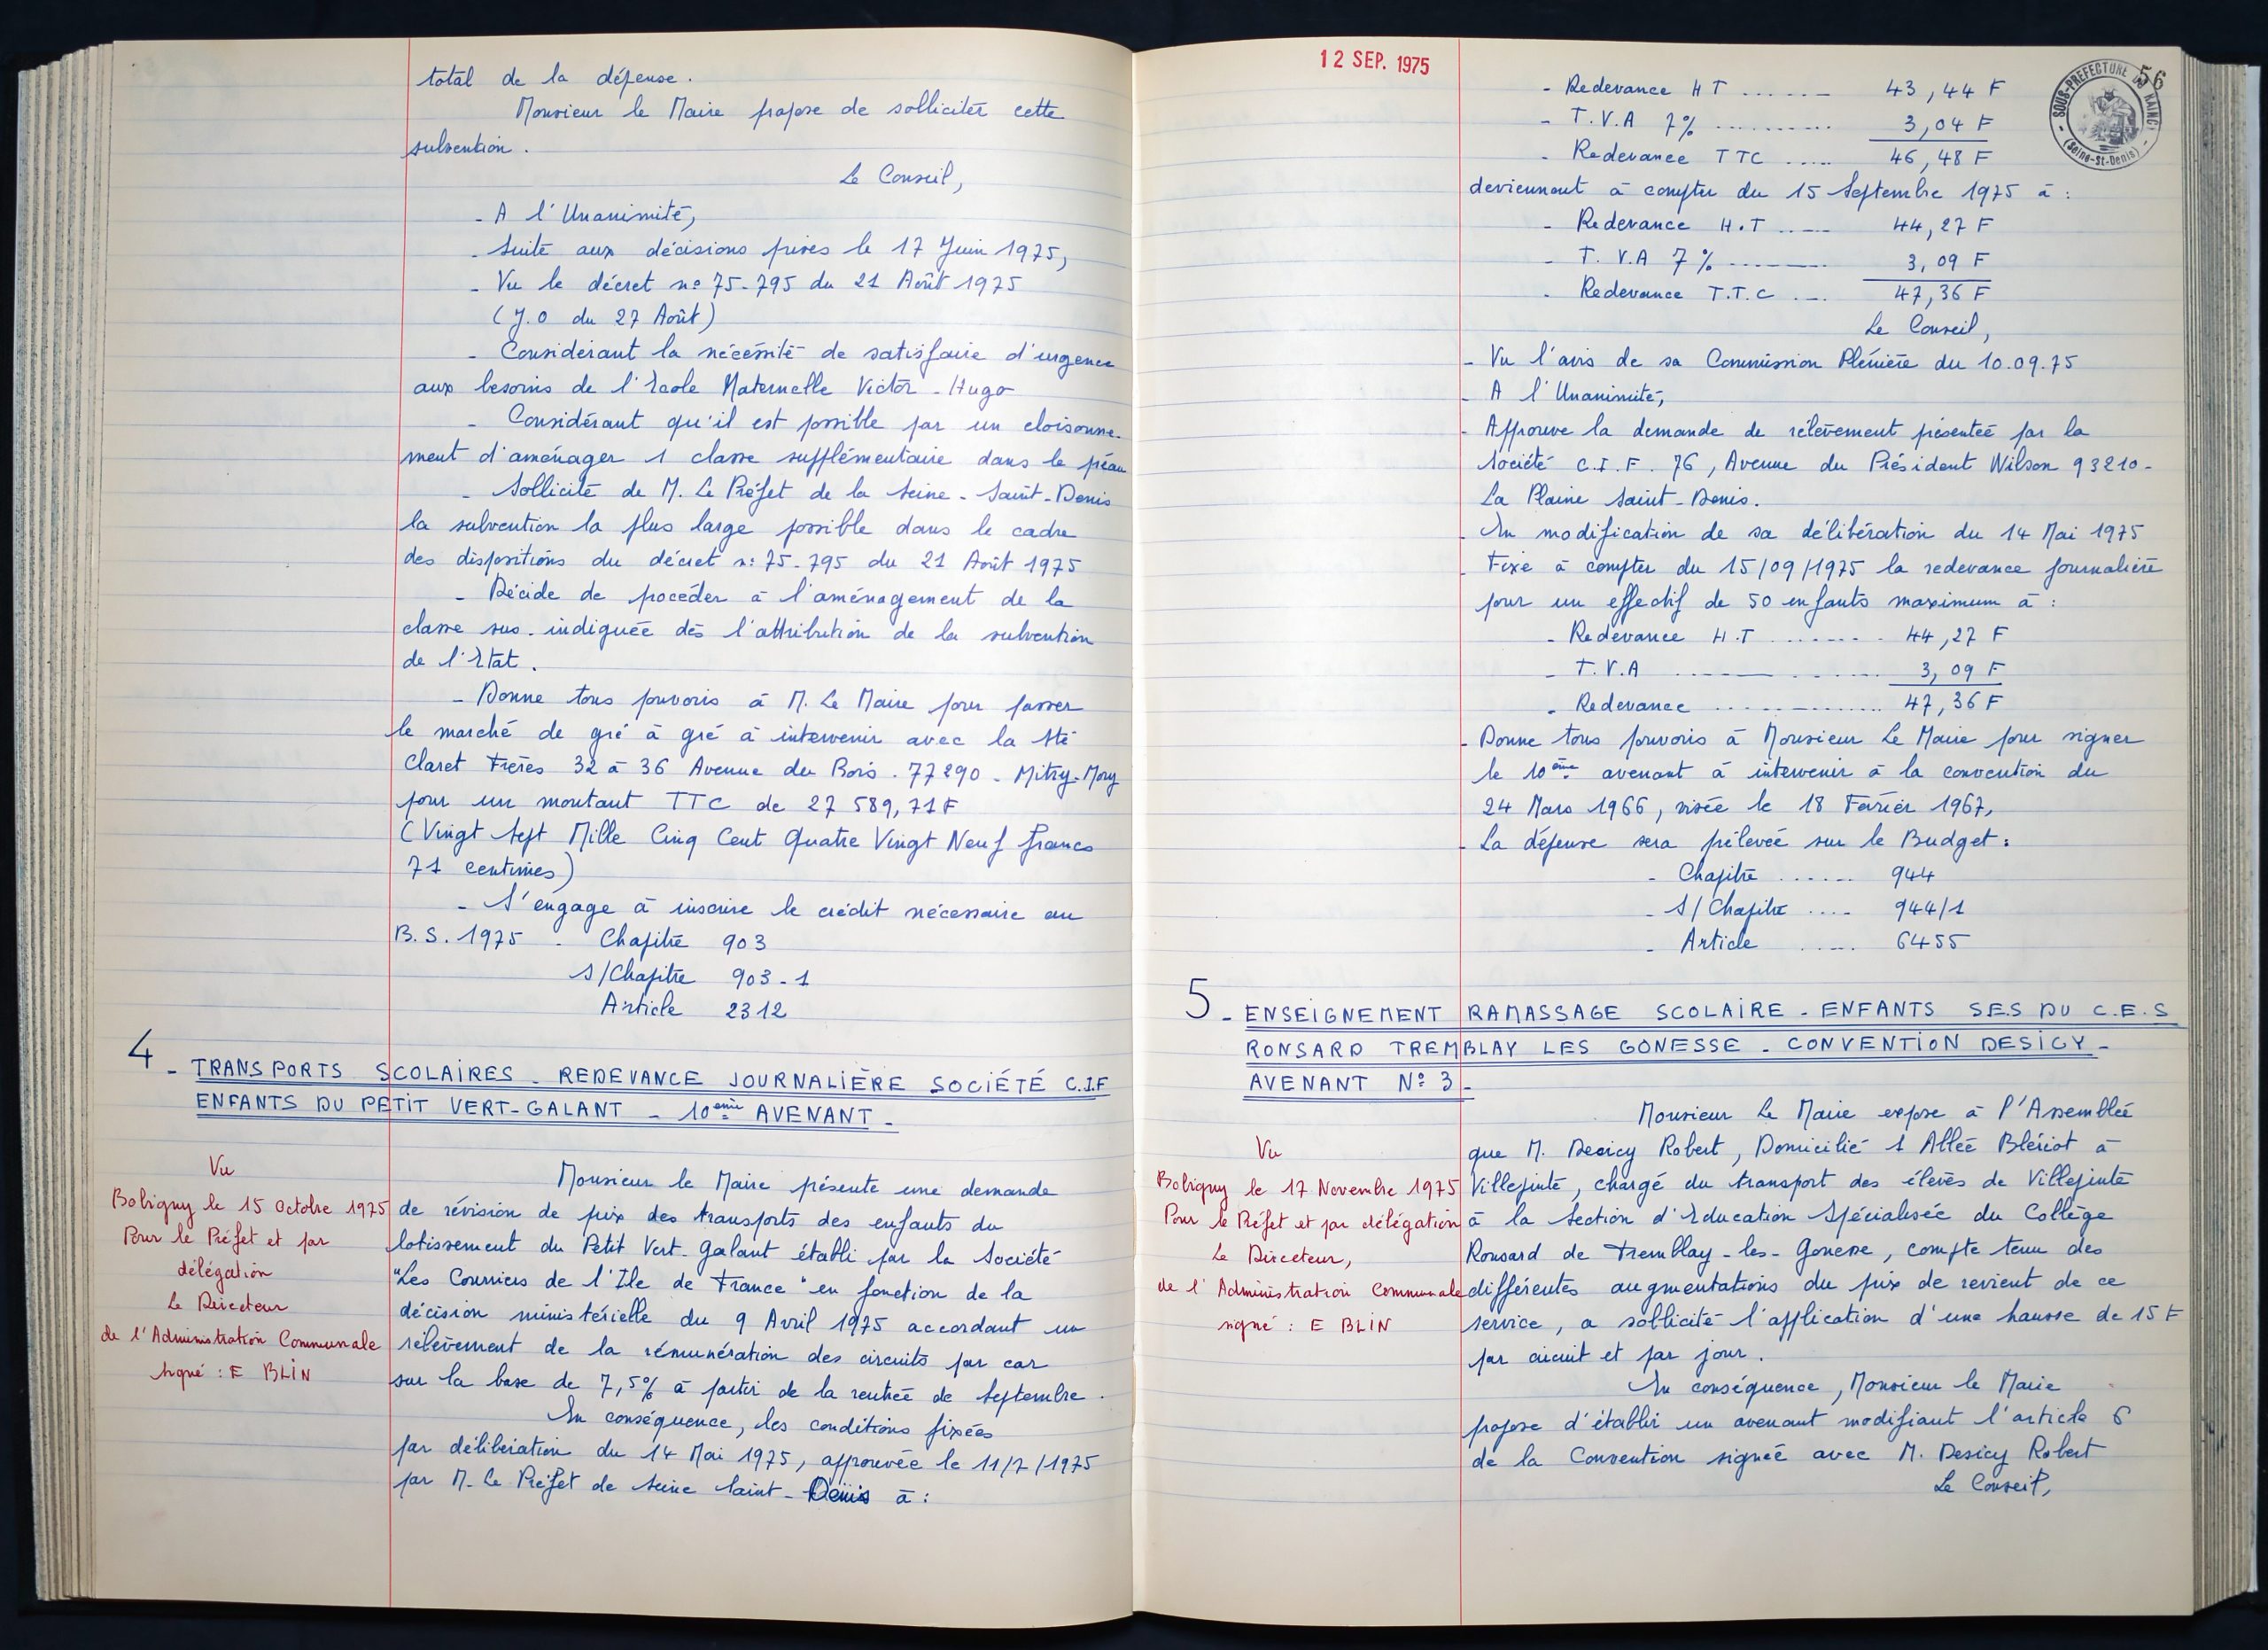 total de la dépense.
Monsieur le Maire propose de solliciter cette
subvention.
Le Conseil,
- A l'Unanimité,
- Suite aux décisions prises le 17 Juin 1975,
- Vu le décret n° 75-795 du 21 Août 1975
(J.O du 27 Août)
- Considérant la nécéssité de satisfaire d'urgence
aux besoins de l'Ecole Maternelle Victor-Hugo
- Considérant qu'il est possible par un cloisonne-
ment d'aménager 1 classe supplémentaire dans le préau
- Sollicite de M. Le Préfet de la Seine-Saint-Denis
la subvention la plus large possible dans le cadre
des dispositions du décret n: 75-795 du 21 Août 1975
- Décide de procéder à l'aménagement de la
classe sus-indiquée dès l'attribution de la subvention
de l'Etat.
- Donne tous pouvoirs à M. Le Maire pour passer
le marché de gré à gré à intervenir avec la Sté
Claret Frères 32 à 36 Avenue du Bois - 77290 - Mitry-Mory
pour un montant TTC de 27 589,71 F
(Vingt Sept Mille Cinq Cent Quatre Vingt Neuf Francs
71 centimes)
- S'engage à inscrire le crédit nécessaire au
B.S. 1975 - Chapitre 903
S/Chapitre 903-1
Article 2312
4 - TRANSPORTS SCOLAIRES - REDEVANCE JOURNALIÈRE SOCIÉTÉ C.I.F
ENFANTS DU PETIT VERT-GALANT - 10ème AVENANT -
Vu
Bobigny le 15 Octobre 1975
Pour le Préfet et par
délégation
Le Directeur
de l'Administration Communale
Signé : E BLIN
Monsieur le Maire présente une demande
de révision de prix des transports des enfants du
lotissement du Petit Vert-Galant établi par la Société
"Les Courriers de l'Ile de France" en fonction de la
décision ministérielle du 9 Avril 1975 accordant un
relèvement de la rémunération des circuits par car
sur la base de 7,5% à partir de la rentrée de Septembre.
En conséquence, les conditions fixées
par délibération du 14 Mai 1975, approuvée le 11/7/1975
par M. Le Préfet de Seine Saint-Denis à :
12 SEP. 1975
56
SOUS-PREFECTURE DU RAINCY
(Seine-St-Denis)
- Redevance H T ...... 43,44 F
- T.V.A 7% .......... 3,04 F
- Redevance TTC ..... 46,48 F
deviennent à compter du 15 Septembre 1975 à :
- Redevance H.T ..... 44,27 F
- T.V.A 7% ........ 3,09 F
- Redevance T.T.C .... 47,36 F
Le Conseil,
- Vu l'avis de sa Commission Plénière du 10.09.75
- A l'Unanimité,
- Approuve la demande de relèvement présentée par la
Société C.I.F. 76, Avenue du Président Wilson 93210-
La Plaine Saint-Denis.
- En modification de sa délibération du 14 Mai 1975
- Fixe à compter du 15/09/1975 la redevance journalière
pour un effectif de 50 enfants maximum à :
- Redevance H.T ....... 44,27 F
- T.V.A ............... 3,09 F
- Redevance ............... 47,36 F
- Donne tous pouvoirs à Monsieur Le Maire pour signer
le 10ème avenant à intervenir à la convention du
24 Mars 1966, visée le 18 Février 1967.
- La dépense sera prélevée sur le Budget :
- Chapitre ...... 944
- S/Chapitre .... 944/1
- Article ..... 6455
5 - ENSEIGNEMENT RAMASSAGE SCOLAIRE - ENFANTS S.E.S DU C.E.S
RONSARD TREMBLAY LES GONESSE - CONVENTION DESICY -
AVENANT N° 3 -
Vu
Bobigny le 17 Novembre 1975
Pour le Préfet et par délégation
Le Directeur,
de l'Administration Communale
signé : E BLIN
Monsieur Le Maire expose à l'Assemblée
que M. Desicy Robert, Domicilié 1 Allée Blériot à
Villepinte, chargé du transport des élèves de Villepinte
à la Section d'Education Spécialisée du Collège
Ronsard de Tremblay-les-Gonesse, compte tenu des
différentes augmentations du prix de revient de ce
service, a sollicité l'application d'une hausse de 15 F
par circuit et par jour.
En conséquence, Monsieur le Maire
propose d'établir un avenant modifiant l'article 6
de la Convention signée avec M. Desicy Robert
Le Conseil,